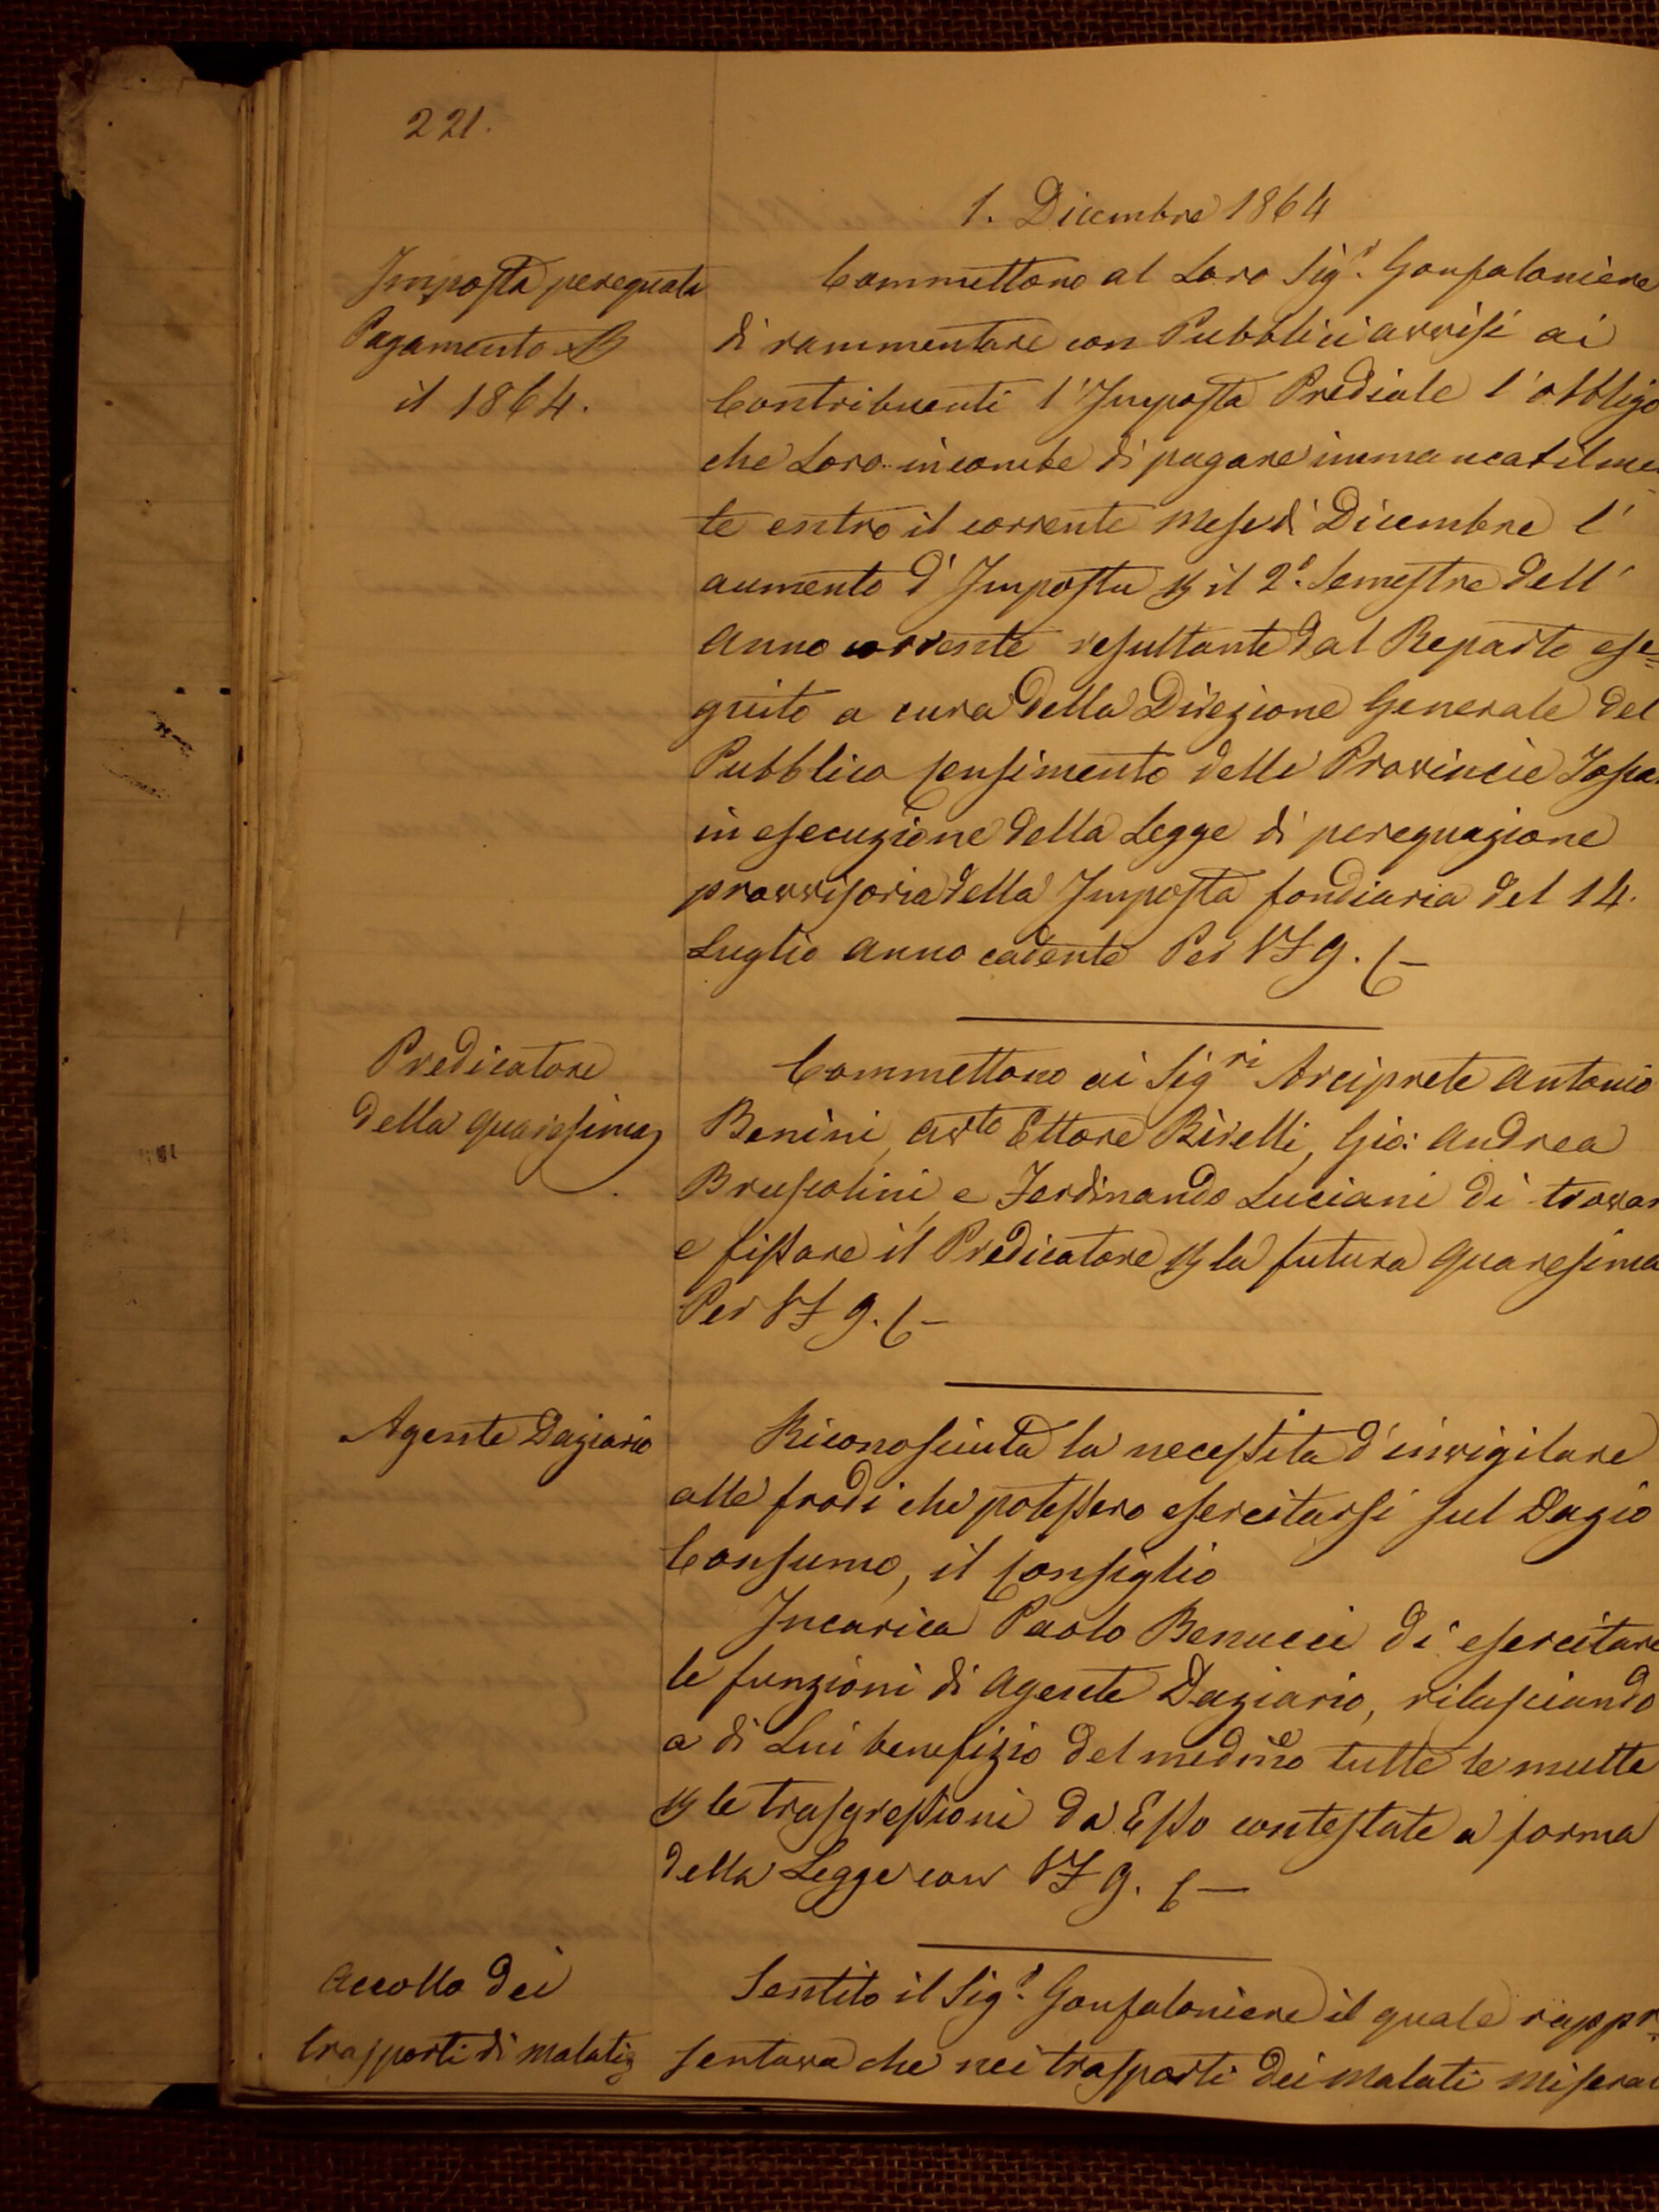 221.
1. Dicembre 1864
Imposta perequata
Pagamento
il 1864.
Commettono al Loro Sigr. Gonfaloniere
di rammentare con Pubblici avvisi ai
Contribuenti l'Imposta Prediale l'obbligo
che Loro incombe di pagare immancabilmen
te entro il corrente mese di Dicembre l'
aumento d'Imposta il 2°. Semestre dell'
Anno corrente resultante dal Reparto ese=
guito a cura della Direzione Generale del
Pubblico Censimento delle Provincie Tosca
in esecuzione della Legge di perequazione
provvisoria della Imposta fondiaria del 14.
Luglio anno cadente Per V. 9.
Predicatore
della quaresima
Commettono ai Sigri Arciprete Antonio
Benini, Avvto Ettore Birelli, Gio: Andrea
Bruscolini, e Ferdinando Luciani di trovar
e fissare il Predicatore la futura quaresima
Per V. 9.
Agente Daziario
Riconosciuta la necessita d'invigilare
alle frodi che potessero esercitarsi sul Dazio
Consumo, il Consiglio
Incarica Paolo Benucci di esercitare
le funzioni di Agente Daziario, rilasciando
a di Lui benefizio del medmo tutte le multe
le trasgressioni da Esso contestate a forma
della Legge con V. 9.
Accollo dei
trasporti di malati
Sentito il Sigr. Gonfaloniere il quale rappre=
sentava che nei trasporti dei malati miserab